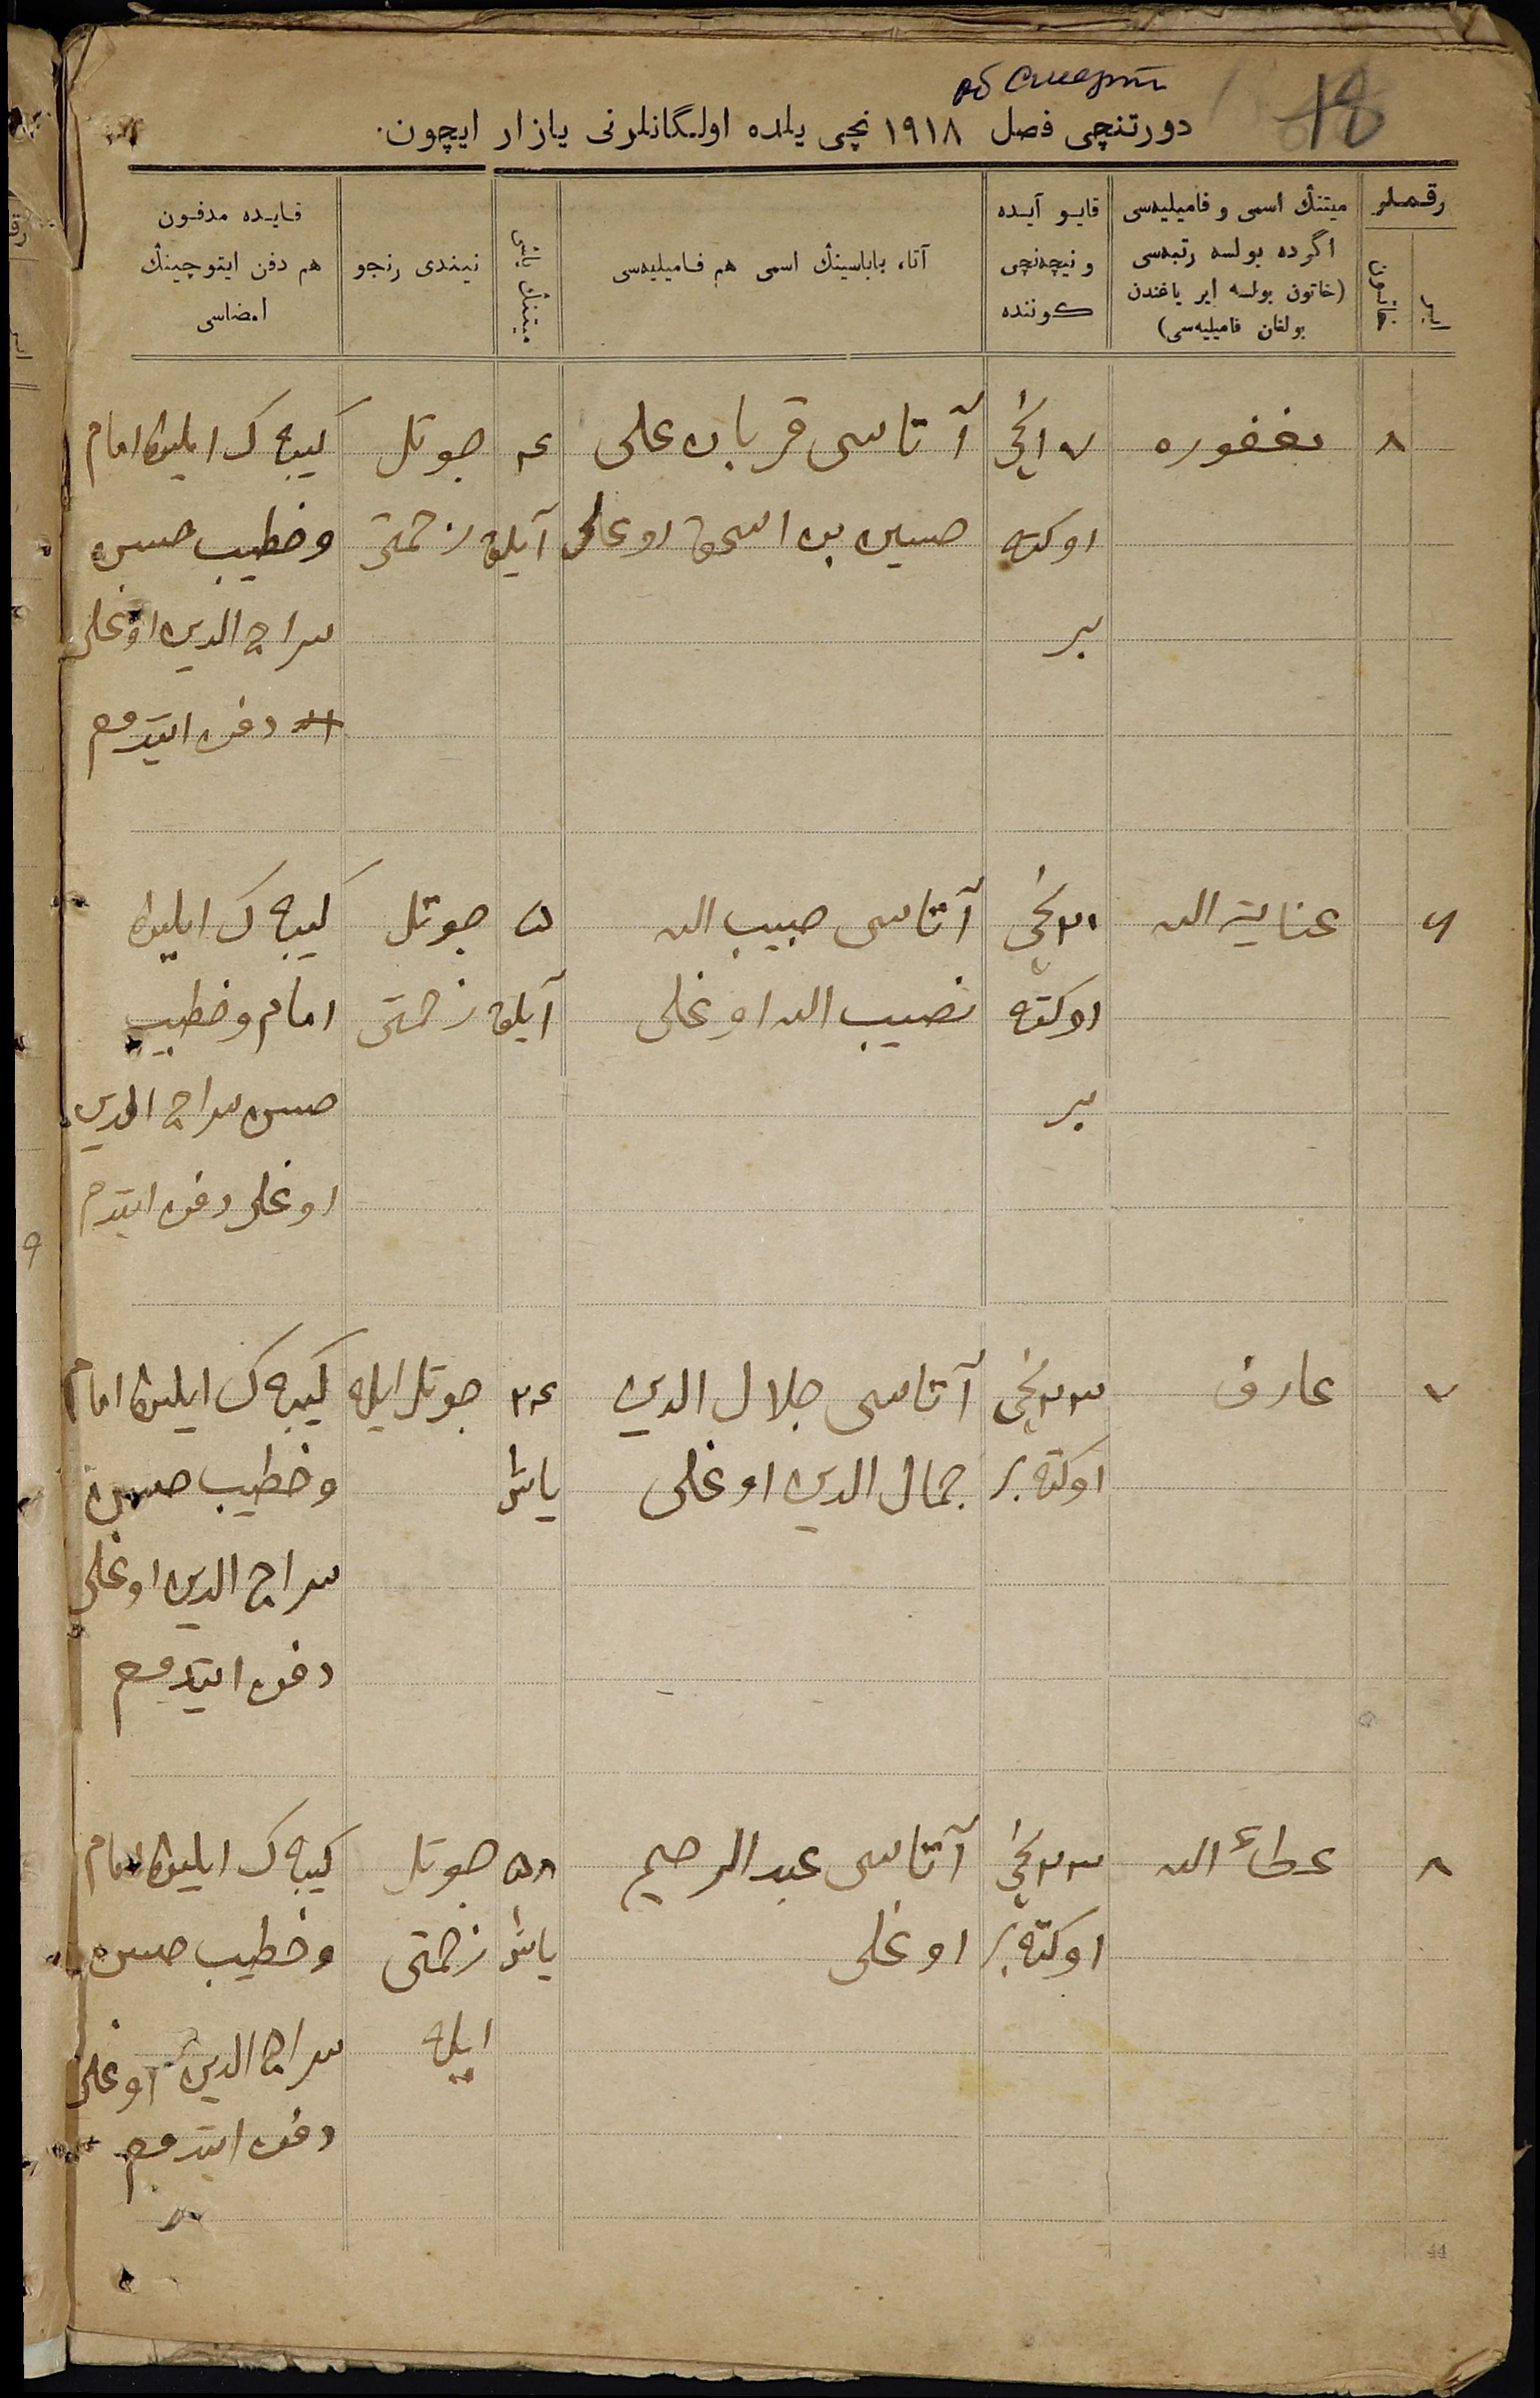 об смерти
18
دورتنچی فصل ۱۹۱۸ نچی یلده اولگانلرنی یازار ایچون.
رقملر
ایر
خاتون
میتنڭ اسمی و فامیلیه‌سی
اگرده بولسه رتبه‌سی
(خاتون بولسه ایر یاغندن
بولغان فامیلیه‌سی)
قایو آیده
و نیچه‌نچی
كوننده
آتا، باباسینڭ اسمی هم فامیلیه‌سی
میتنڭ یاشی
نیندی رنجو
قایده مدفون
هم دفن ایتوچینڭ
امضاسی
۸ مغفوره ۱۷نچی آتاسی قربان علی ۴ جوتل امام
اوكته حسین بن اسحق اوغلی آیلق زحمتی وخطیب حسن
بر سراج الدین اوغلی
دفن ایتدوم
۶ عنایة الله ۲۱نچی آتاسی حبیب الله ۵ جوتل
اوكته نصیب الله اوغلی آیلق زحمتی امام وخطیب
بر حسن سراج الدین
اوغلی دفن ایتدم
۷ عارف ۲۳نچی آتاسی جلال الدین ۲۴ جوتل ایله امام
اوكته‌بر جمال الدین اوغلی یاش وخطیب حسن
سراج الدین اوغلی
دفن ایتدوم
۸ عطاء الله ۲۳نچی آتاسی عبد الرحیم ۵۸ جوتل امام
اوكته‌بر اوغلی یاش زحمتی وخطیب حسن
ایله سراج الدین اوغلی
دفن ایتدوم
44